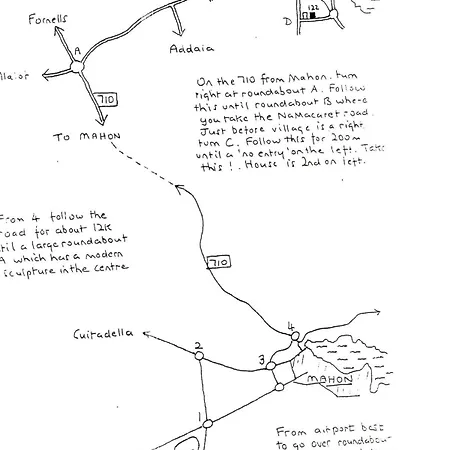 Fornells
122
D
A
Addaia
710
TO MAHON
On the 710 from Mahon. turn
right at roundabout A. Follow
this until roundabout B where
you take the NaMacaret road.
Just before village is a right
turn C. Follow this for 200m
until a 'no entry' on the left. Take
this !. House is 2nd on left.
From 4 follow the
road for about 12k
until a large roundabout
A which has a modern
sculpture in the centre
710
Cuitadella
2
4
3
MAHON
1
From airport best
to go over roundabout